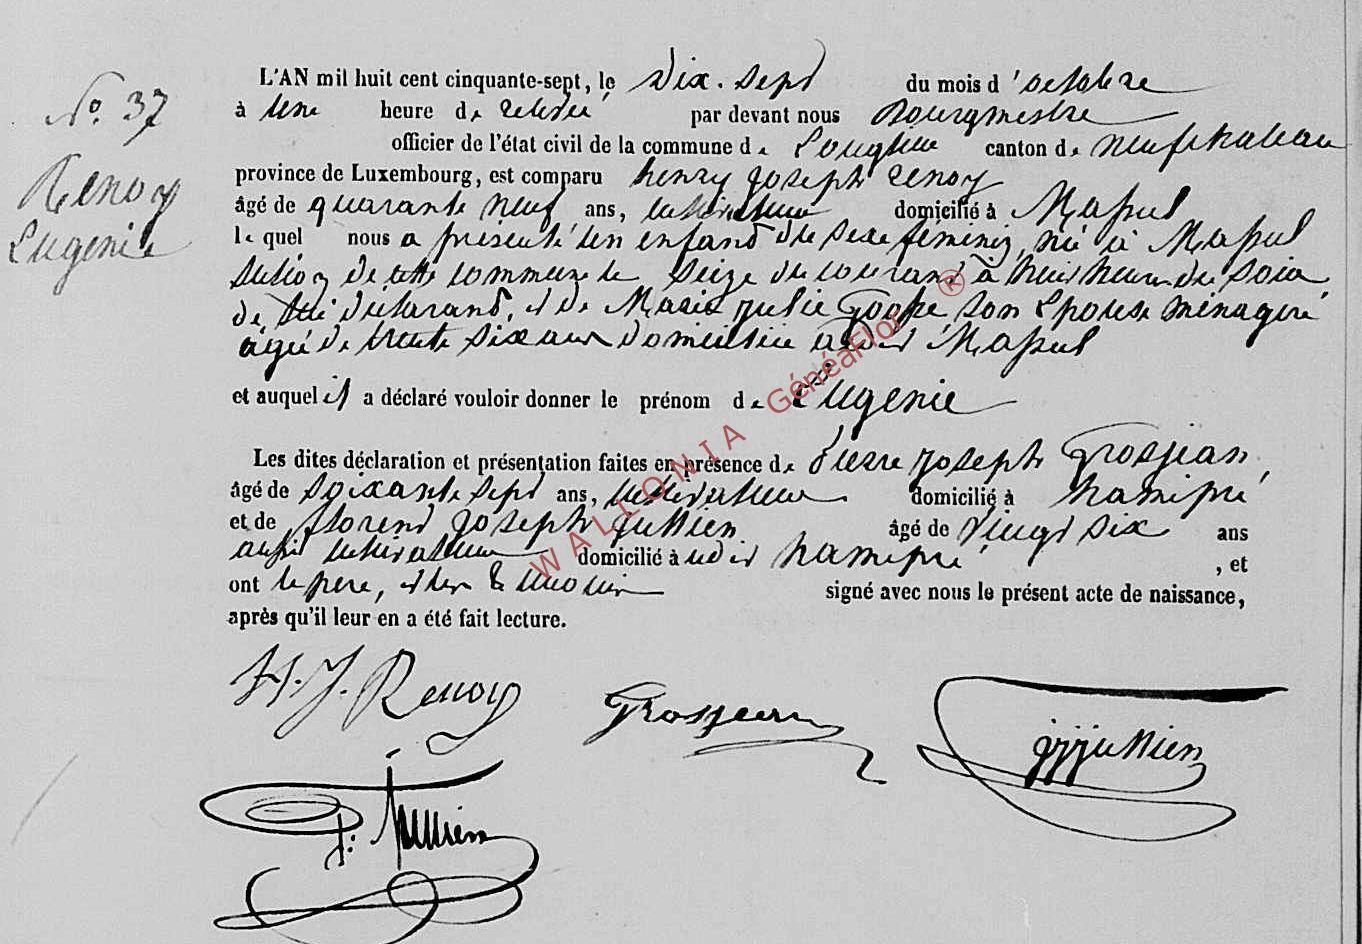 N°. 37
Renoy
Eugenie
L'AN mil huit cent cinquante-sept, le dix-sept du mois d'octobre
à une heure de relevée par devant nous Bourgmestre
officier de l'état civil de la commune de Longlier canton de neufchateau
province de Luxembourg, est comparu henry joseph renoy
âgé de quarante neuf ans, cultivateur domicilié à Massul
lequel nous a présenté un enfant du sexe feminin, né à Massul
section de cette commune le seize du courant à huit heures du soir
de lui déclarant, et de Marie julie Goffe, son Epouse ménagère
agée de trente six ans domiciliée audit Massul
et auquel il a déclaré vouloir donner le prénom de Eugenie
Les dites déclaration et présentation faites en présence de Pierre joseph Grosjean,
âgé de soixante sept ans, cultivateur domicilié à hamipré
et de florent joseph jullien âgé de vingt six ans
aussi cultivateur domicilié à udit hamipré , et
ont le père, et les témoins signé avec nous le présent acte de naissance,
après qu'il leur en a été fait lecture.
H. J. Renoy
Grosjean
jjjullien
f: Jullien
WALLONIA GénéaFlor ®